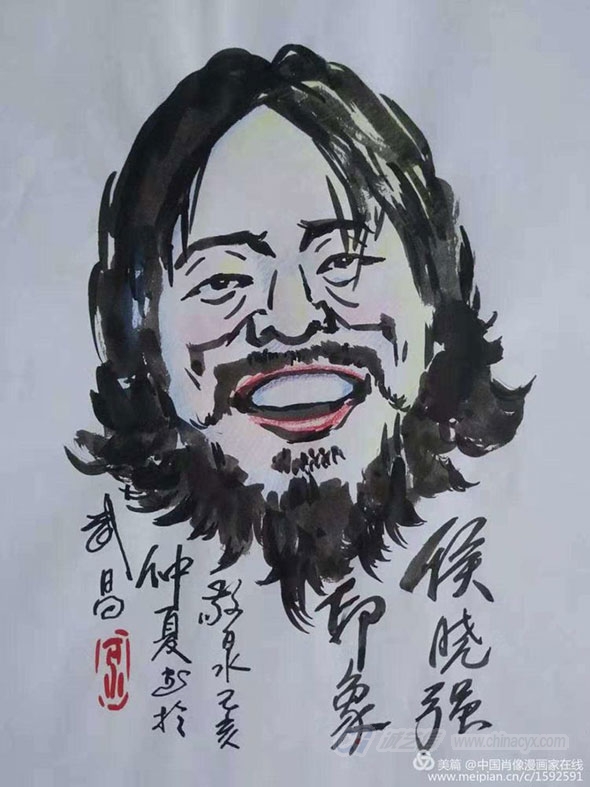 侯晓强
印象
敬泉己亥
仲夏画于
武昌
www.chinacyx.com
美篇 @中国肖像漫画家在线
www.meipian.cn/c/1592591